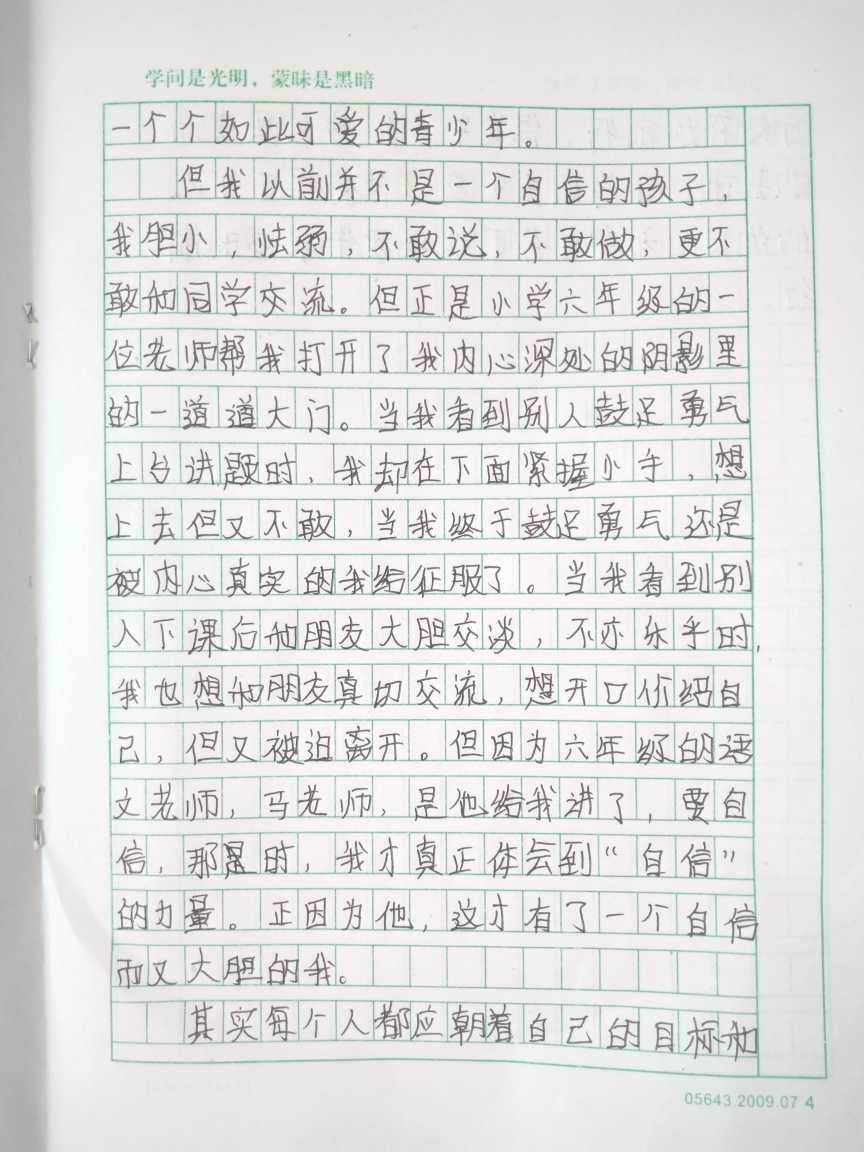 学问是光明，蒙昧是黑暗
一个个如此可爱的青少年。
但我以前并不是一个自信的孩子，
我胆小，怯弱，不敢说，不敢做，更不
敢和同学交流。但正是小学六年级的一
位老师帮我打开了我内心深处的阴影里
的一道道大门。当我看到别人鼓足勇气
上台讲题时，我却在下面紧握小手，想
上去但又不敢，当我终于鼓足勇气还是
被内心真实的我给征服了。当我看到别
人下课后和朋友大胆交谈，不亦乐乎时，
我也想和朋友真切交流，想开口价绍自
己，但又被迫离开。但因为六年级的语
文老师，马老师，是他给我讲了，要自
信，那是时，我才真正体会到“自信”
的力量。正因为他，这才有了一个自信
而又大胆的我。
其实每个人都应朝着自己的目标和
05643.2009.07 4